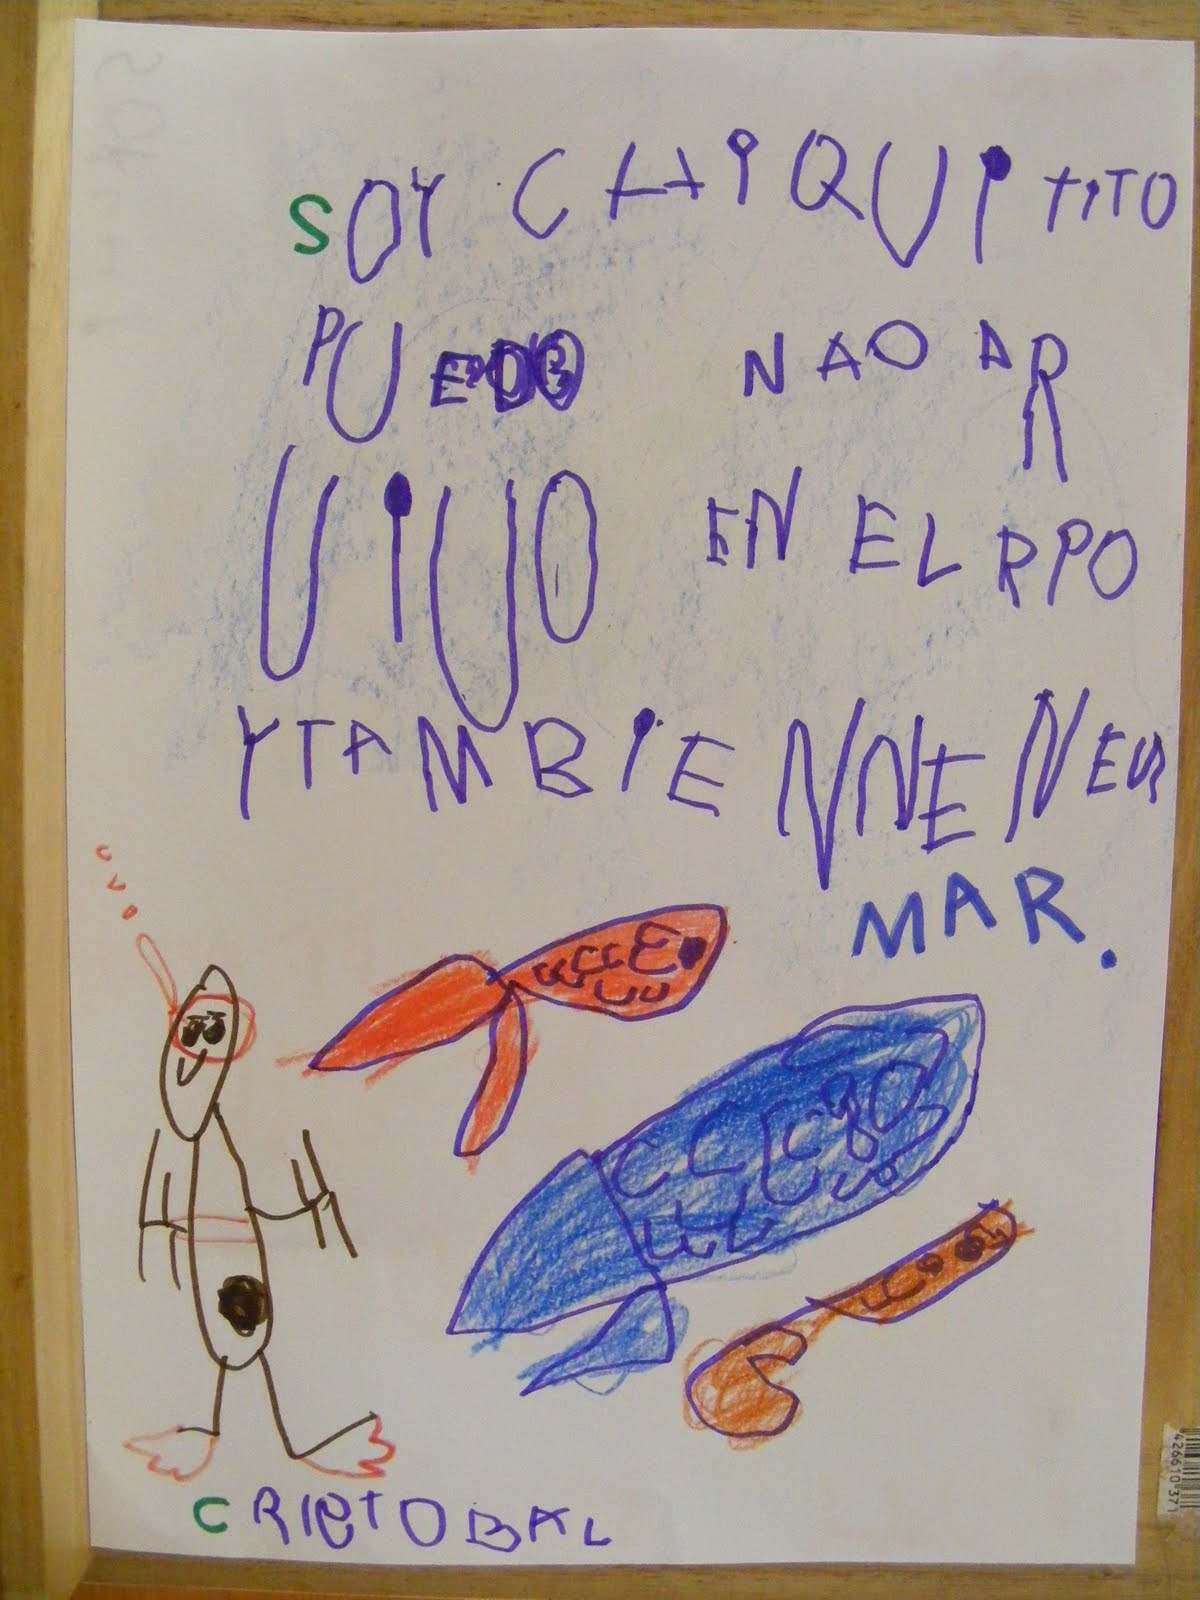 SOY CHIQUITITO
PUEDO NADAR
VIVO EN EL RIO
Y TAMBIEN NEN EL
MAR.
CRISTOBAL
8426610371